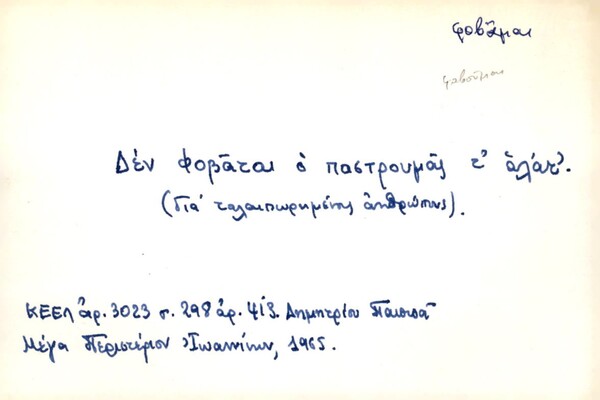 φοβᾶμαι
φοβοῦμαι
Δέν φοβᾶται ὁ παστρουμᾶς τ' ἁλάτ'.
(Γιά ταλαιπωρημένους ἀνθρώπους).
ΚΕΕΛ ἀρ. 3023 σ. 298 ἀρ. Δημητρίου
Μέγα Περιστέριον Ἰωαννίνων, 1965.